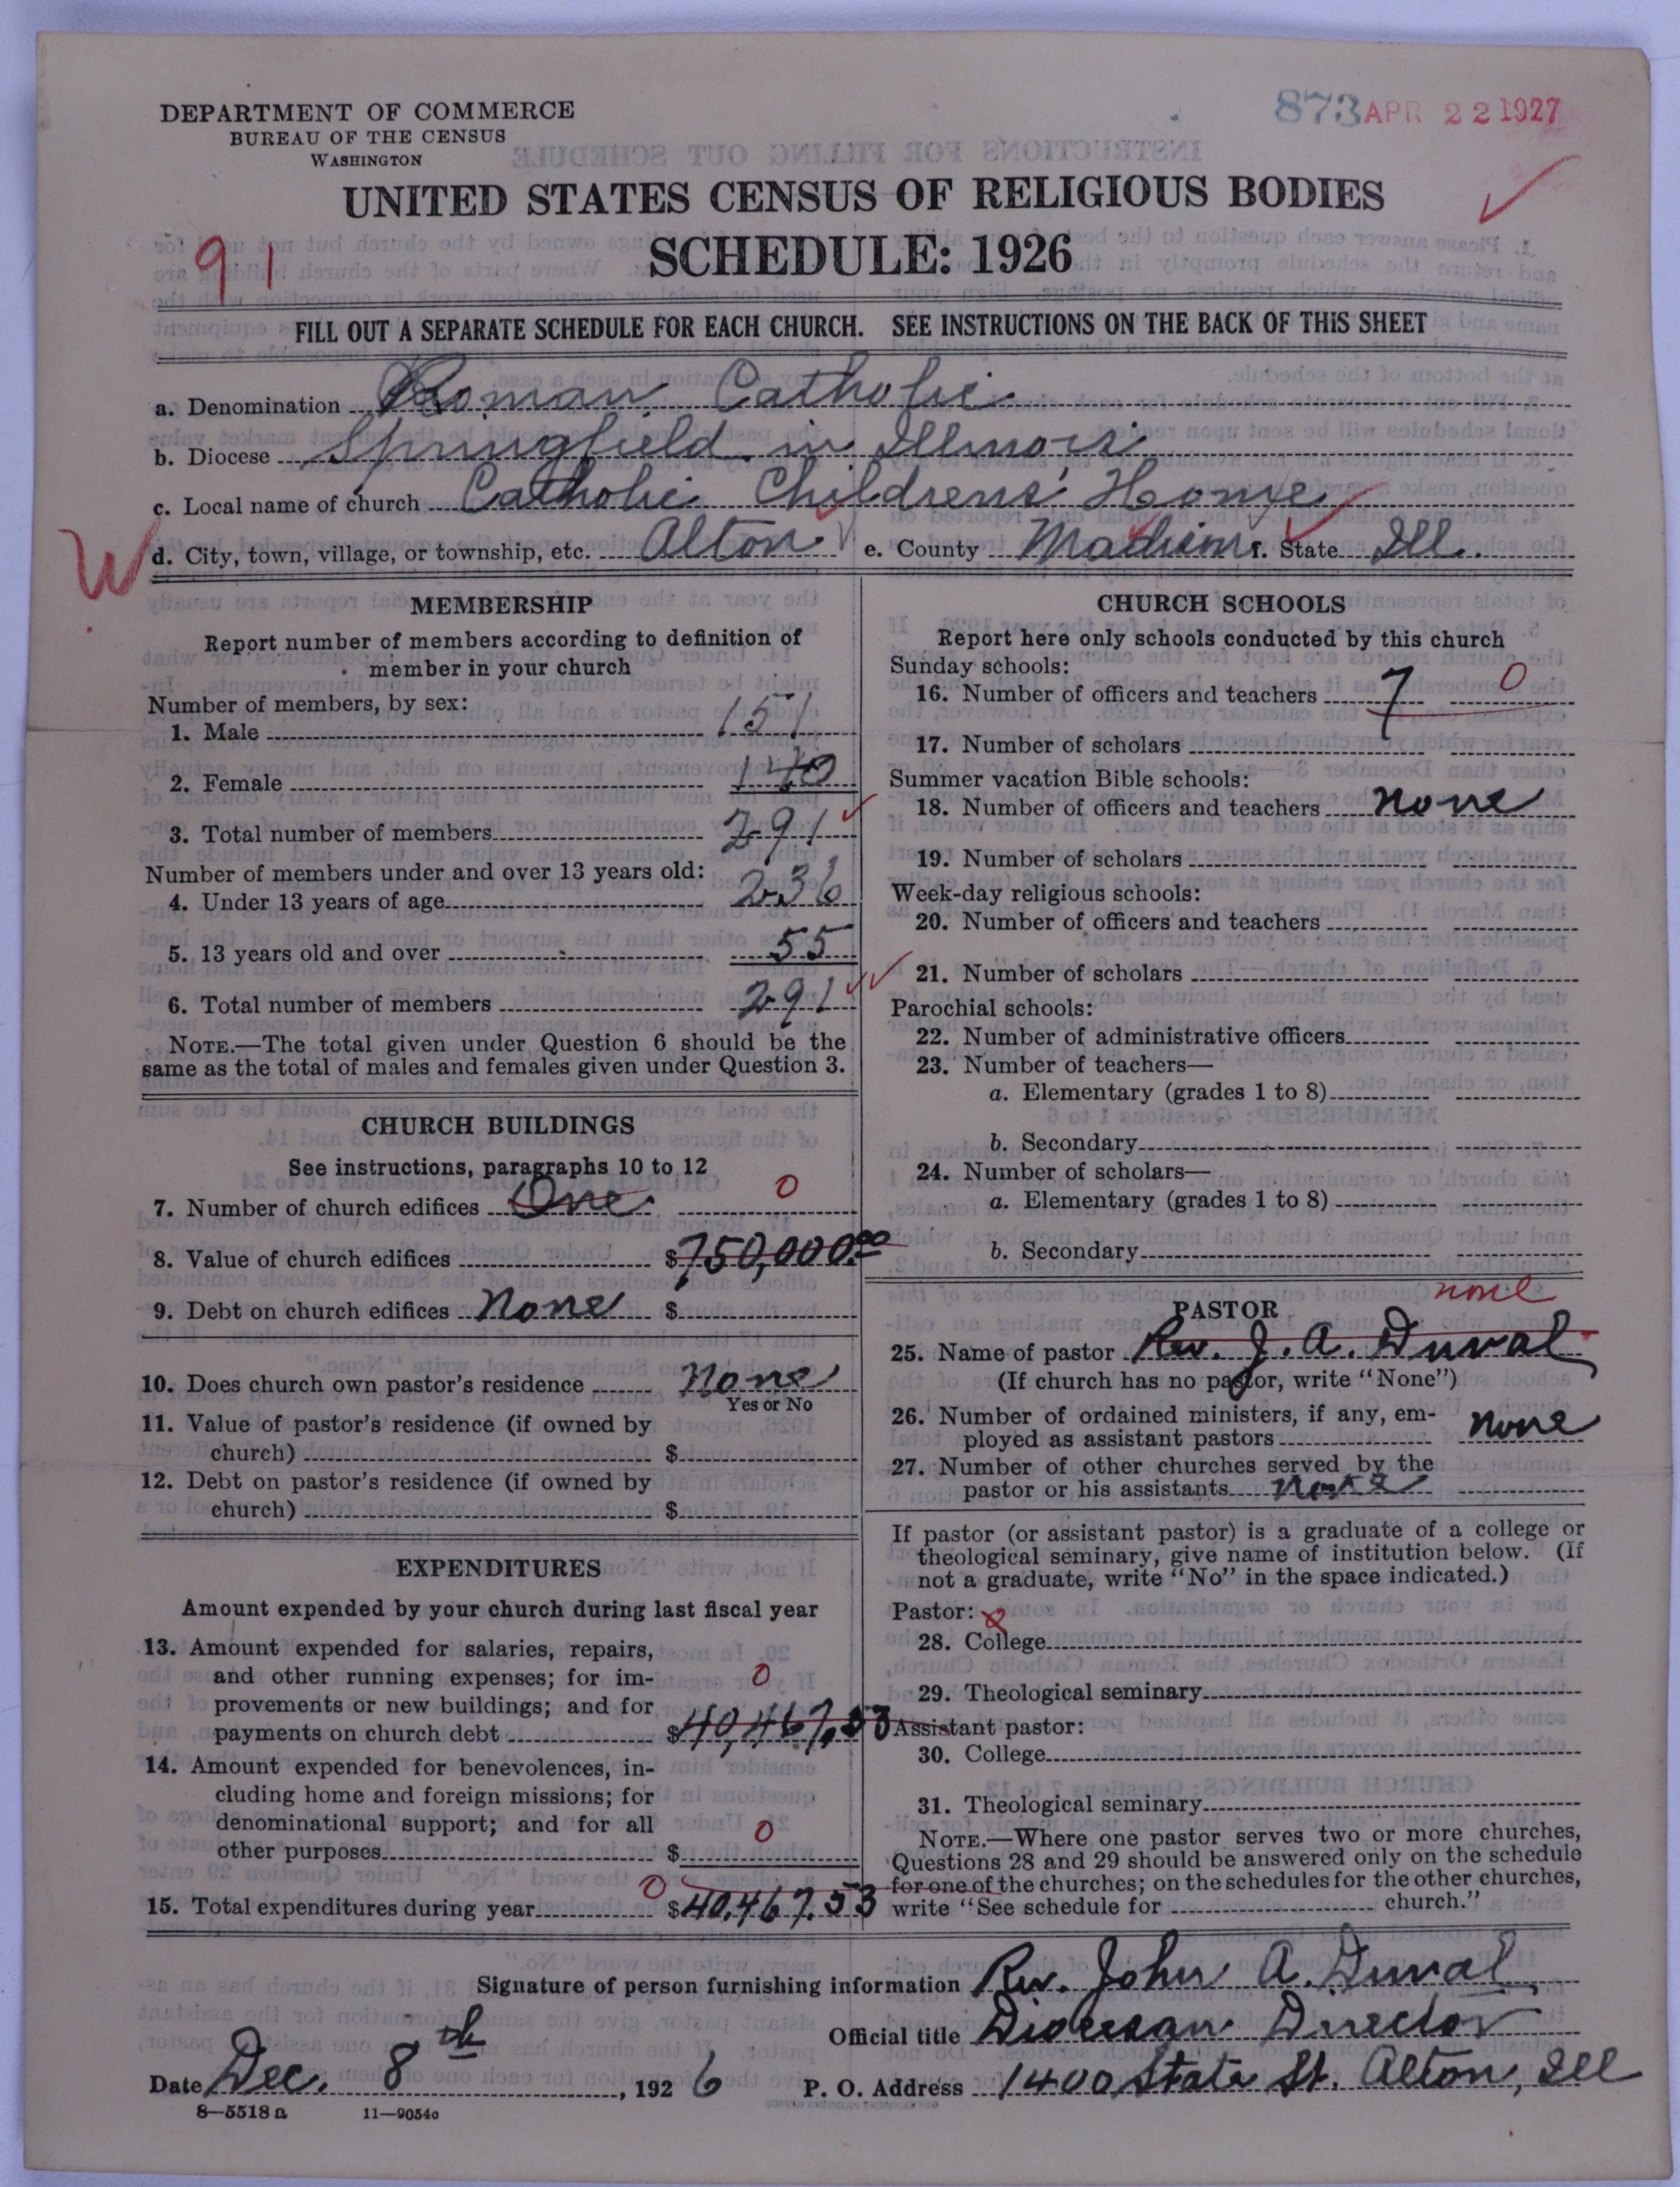 873 APR 22 1927
DEPARTMENT OF COMMERCE
BUREAU OF THE CENSUS
WASHINGTON
UNITED STATES CENSUS OF RELIGIOUS BODIES
SCHEDULE: 1926
91
FILL OUT A SEPARATE SCHEDULE FOR EACH CHURCH. SEE INSTRUCTIONS ON THE BACK OF THIS SHEET
a. Denomination Roman Catholic
b. Diocese Springfield in Illinois
c. Local name of church Catholic Childrens' Home
W d. City, town, village, or township, etc. Alton e. County Madison f. State Ill.
MEMBERSHIP
Report number of members according to definition of
member in your church
Number of members, by sex:
1. Male 151
2. Female 140
3. Total number of members 291
Number of members under and over 13 years old:
4. Under 13 years of age 236
5. 13 years old and over 55
6. Total number of members 291
NOTE.—The total given under Question 6 should be the
same as the total of males and females given under Question 3.
CHURCH BUILDINGS
See instructions, paragraphs 10 to 12
7. Number of church edifices One 0
8. Value of church edifices $750,000.00
9. Debt on church edifices None $
10. Does church own pastor's residence None
Yes or No
11. Value of pastor's residence (if owned by
church) $
12. Debt on pastor's residence (if owned by
church) $
EXPENDITURES
Amount expended by your church during last fiscal year
13. Amount expended for salaries, repairs,
and other running expenses; for im- 0
provements or new buildings; and for
payments on church debt $40,467.53
14. Amount expended for benevolences, in-
cluding home and foreign missions; for
denominational support; and for all 0
other purposes $
15. Total expenditures during year 0 $40,467.53
CHURCH SCHOOLS
Report here only schools conducted by this church
Sunday schools:
16. Number of officers and teachers 7 0
17. Number of scholars
Summer vacation Bible schools:
18. Number of officers and teachers none
19. Number of scholars
Week-day religious schools:
20. Number of officers and teachers
21. Number of scholars
Parochial schools:
22. Number of administrative officers
23. Number of teachers—
a. Elementary (grades 1 to 8)
b. Secondary
24. Number of scholars—
a. Elementary (grades 1 to 8)
b. Secondary
none
PASTOR
25. Name of pastor Rev. J. A. Duval
(If church has no pastor, write "None")
26. Number of ordained ministers, if any, em-
ployed as assistant pastors none
27. Number of other churches served by the
pastor or his assistants none
If pastor (or assistant pastor) is a graduate of a college or
theological seminary, give name of institution below. (If
not a graduate, write "No" in the space indicated.)
Pastor:
28. College
29. Theological seminary
Assistant pastor:
30. College
31. Theological seminary
NOTE.—Where one pastor serves two or more churches,
Questions 28 and 29 should be answered only on the schedule
for one of the churches; on the schedules for the other churches,
write "See schedule for church."
Signature of person furnishing information Rev. John A. Duval
Official title Diocesan Director
Date Dec. 8th, 1926 P. O. Address 1400 State St. Alton, Ill
8—5518 a 11—9054c